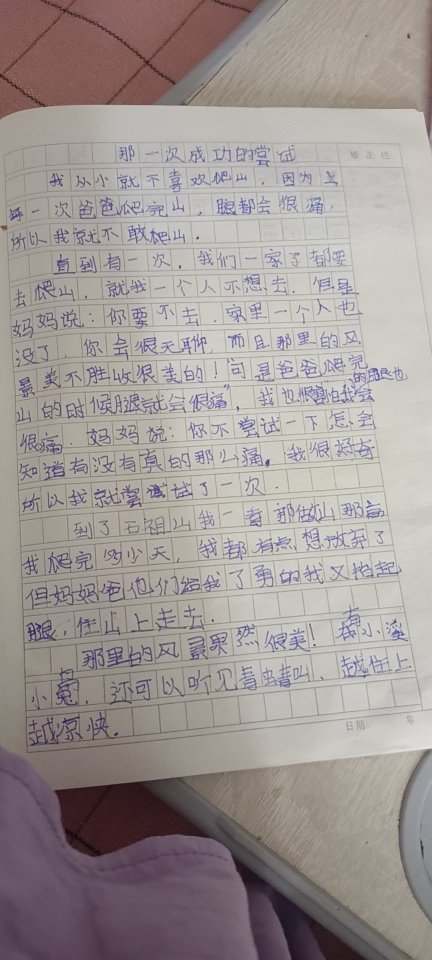 那一次成功的尝试
修正栏
我从小就不喜欢爬山，因为上
每一次爸爸爬完山，腿都会很痛，
所以我就不敢爬山．
直到有一次．我们一家子都要
去爬山，就我一个人不想去．但是
妈妈说：你要不去．家里一个人也
没了，你会很无聊，而且那里的风
景美不胜收很美的！可是爸爸爬完
山的时候腿就会很痛，我也很害怕我会
的腿也
很痛．妈妈说：你不尝试一下怎会
知道有没有真的那么痛，我很好奇
所以我就尝试试了一次．
到了五祖山我一看那做山那高
我爬完多少天，我都有点想放弃了
但妈妈爸他们给我了勇的我又抬起
腿，往山上走去．
那里的风景果然很美！有小溪
小，还可以听见叫、越往上
越凉快。
日期： 年